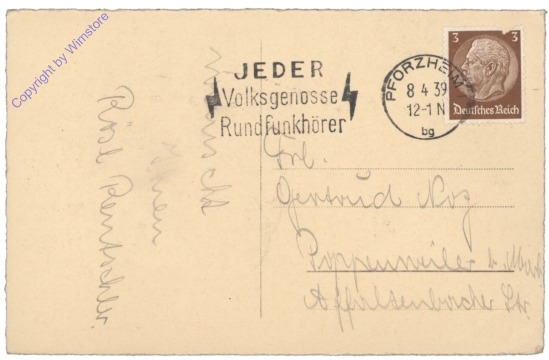 Copyright by Wimstore
JEDER
Volksgenosse
Rundfunkhörer
PFORZHEIM
8 4 39
12-1 N
bg
3 3
Deutsches Reich
Frl.
Gertrud Noz
Poppenweiler
Affalterbacher Str.
wünscht
Ihnen
Rösl